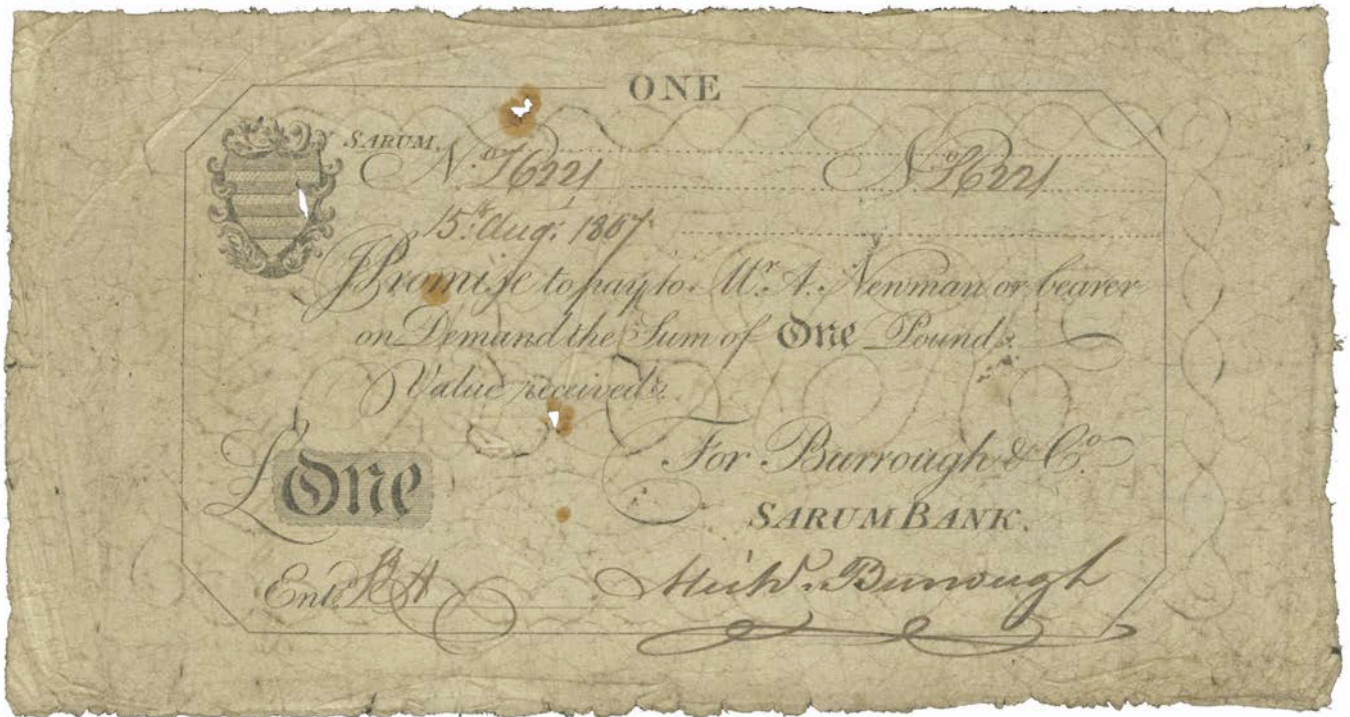 ONE
SARUM,
No. 76221 No. 76221
15th Augt. 1807
I Promise to pay to Mr. A. Newman or bearer
on Demand the Sum of One Pound.
Value received.
For Burrough & Co.
£ One
SARUM BANK.
Entd. Burrough